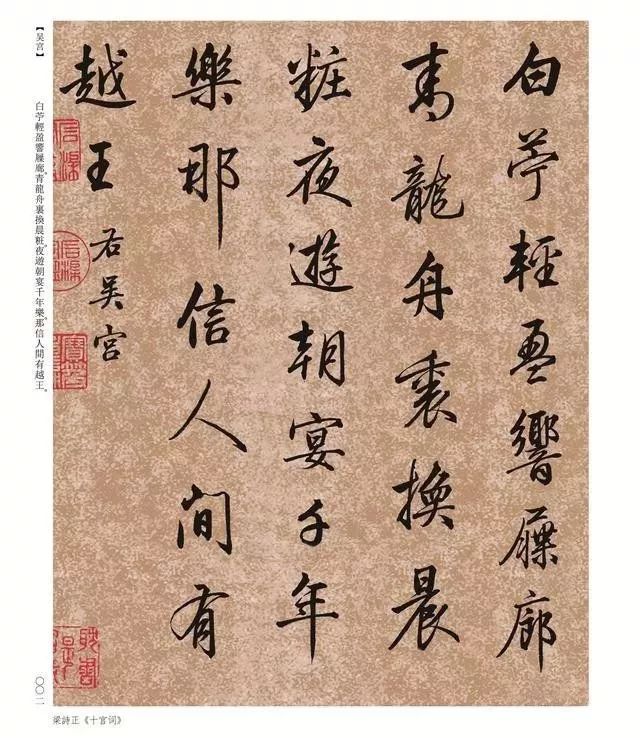 白苧輕盈響屧廊
青龍舟裏換晨
粧夜遊朝宴千年
樂那信人間有
越王
右吴宫
【吴宫】
白苧輕盈響屧廊。青龍舟裏換晨粧。夜遊朝宴千年樂。那信人間有越王。
〇〇二
梁詩正《十宫词》